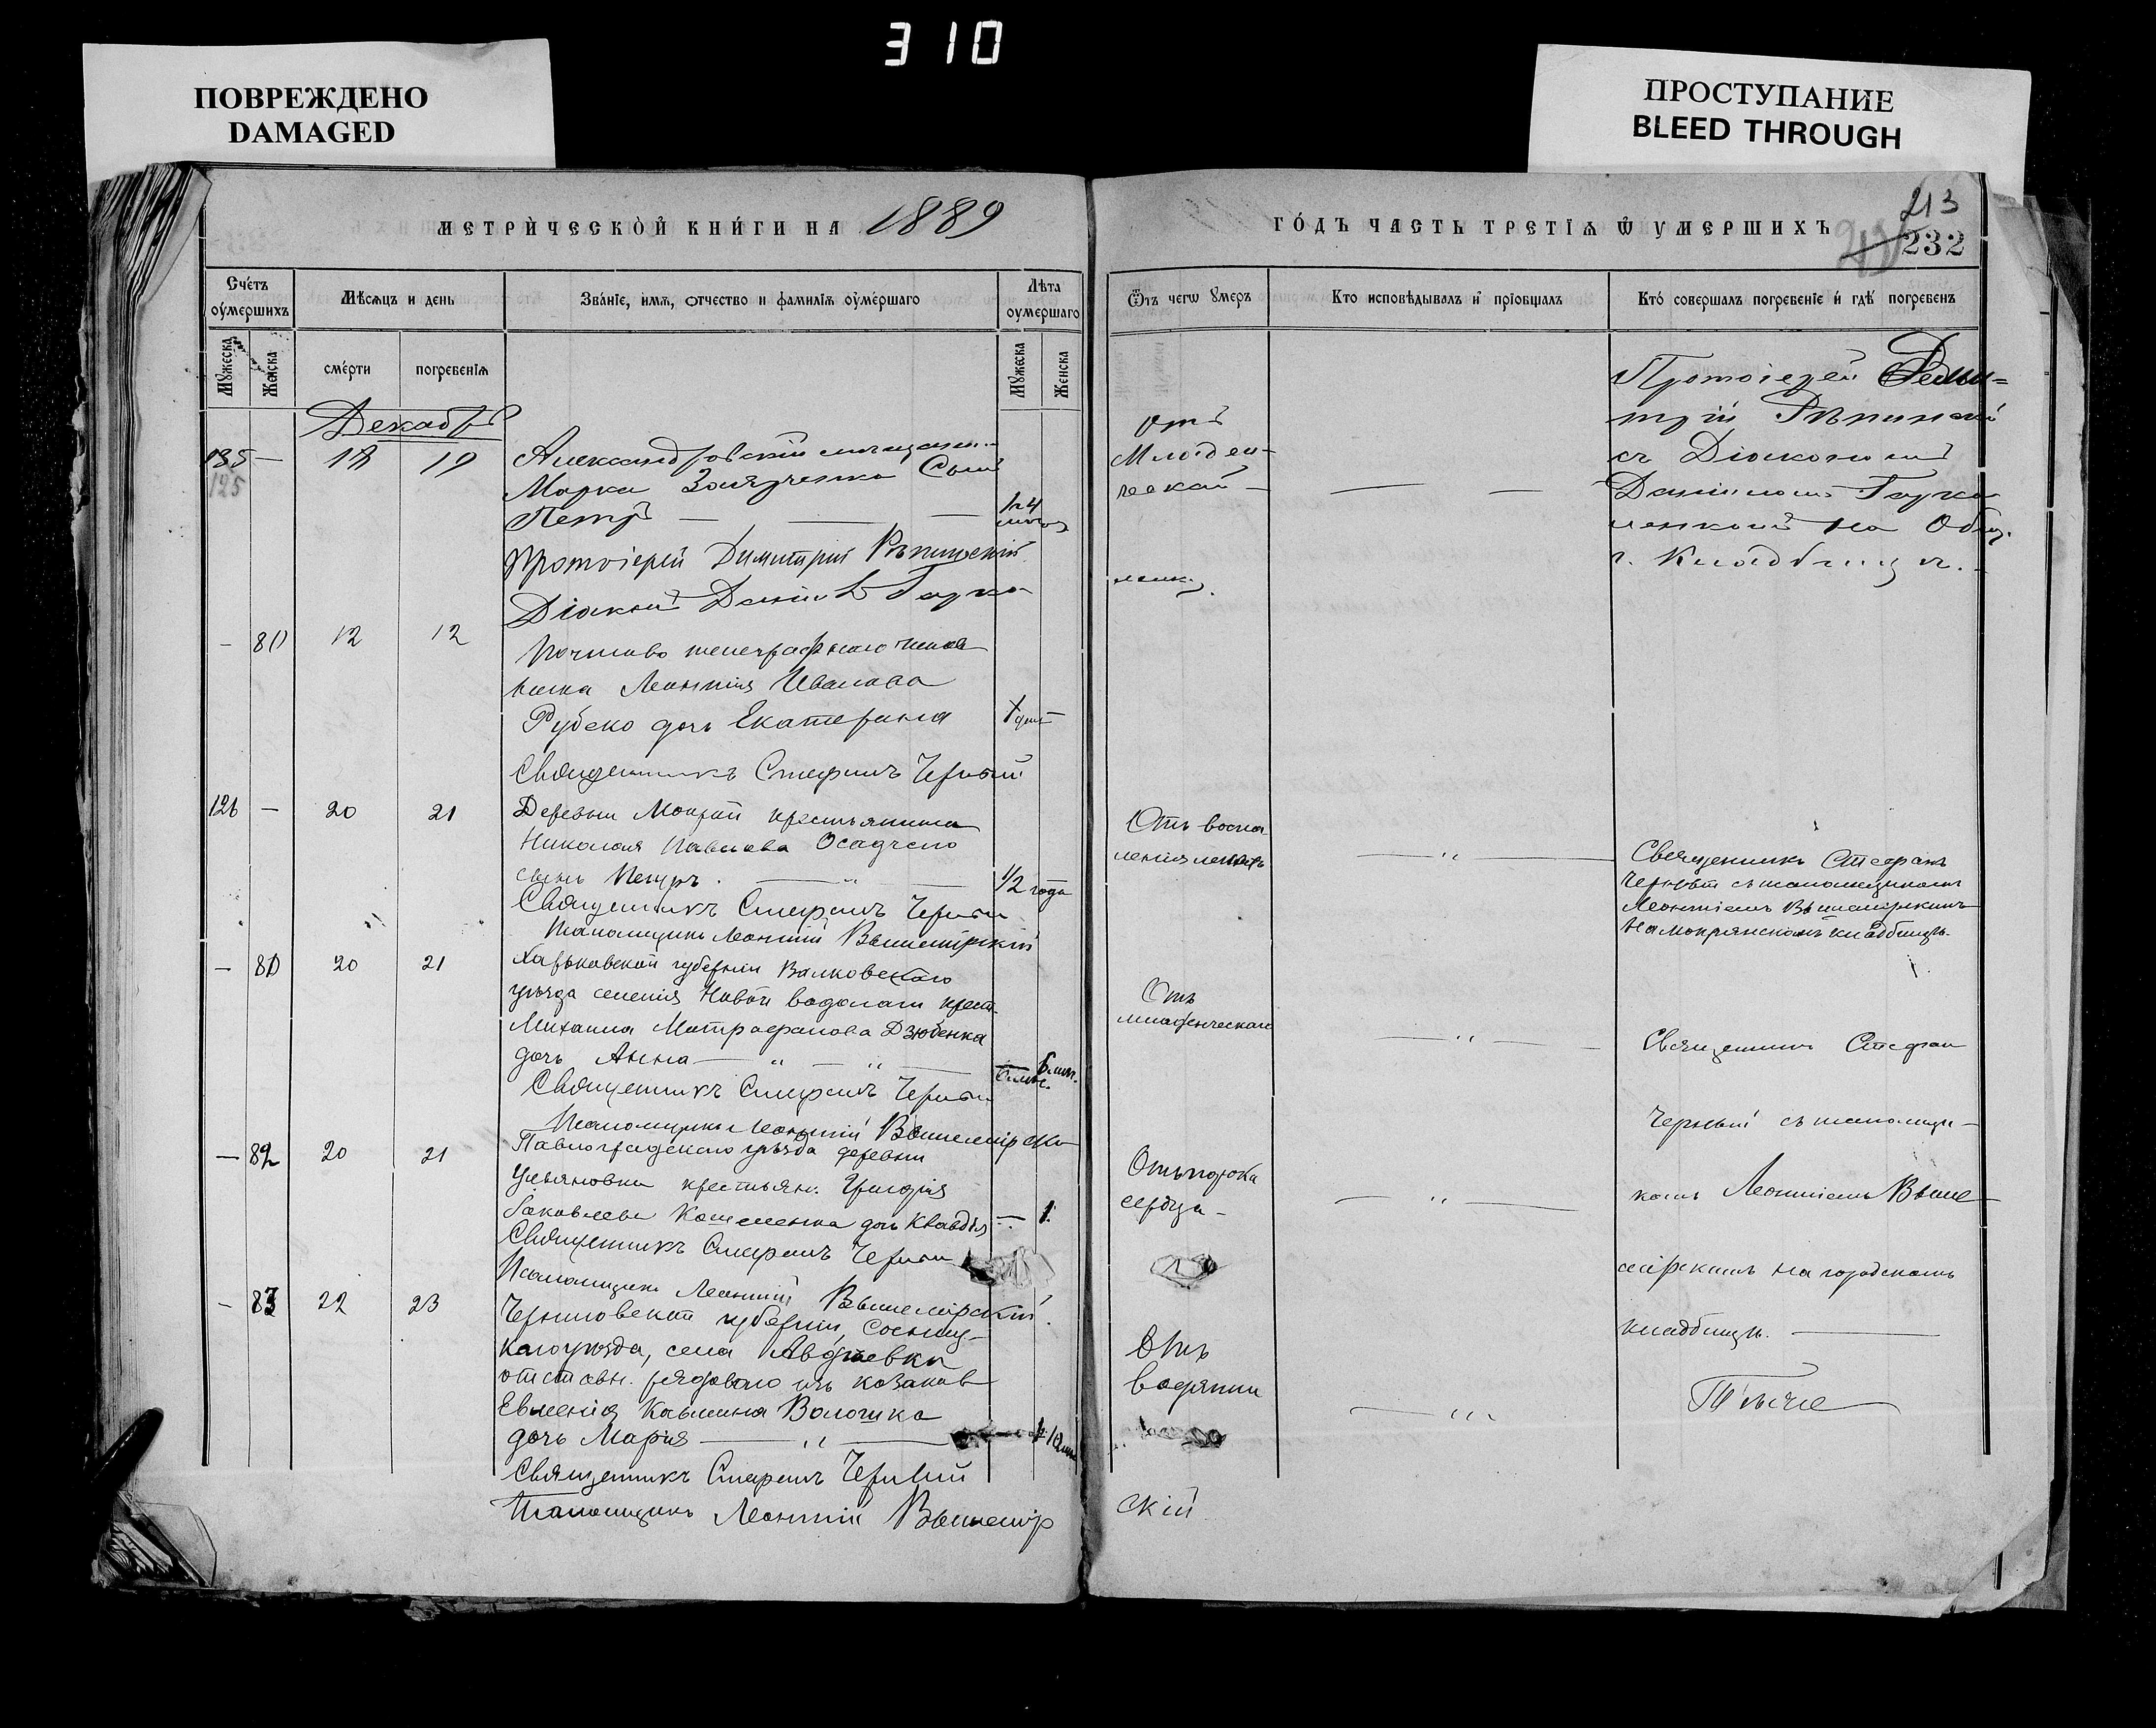 310
ПОВРЕЖДЕНО
DAMAGED
ПРОСТУПАНИЕ
BLEED THROUGH
МЕТРИЧЕСКОЙ КНИГИ НА 1889
ГОДЪ ЧАСТЬ ТРЕТІЯ Ѿ УМЕРШИХЪ
213
232
Счетъ оумершихъ
Мѣсяцъ и день
Званіе, имя, отчество и фамилія оумершаго
Лѣта оумершаго
Ѿъ чегѡ умеръ
Кто исповѣдывалъ и пріобщалъ
Кто совершалъ погребеніе и гдѣ погребенъ
Мужеска
Женска
смерти
погребенія
Мужеска
Женска
Декабрь
135 — 18 19
125
Александровскій мѣщанин
Марка Сынъ
Петръ — — —
Отъ
Младен-
ческой —
Протоіерей Дими-
трій Рѣпинскій
съ Діакономъ
Даніиломъ Гарка
на Общ.
г. Кладбищѣ.
Протоіерей Димитрій Рѣпинскій
Діаконъ Даніилъ Гарка
ленк.
— 80 12 12
Почтово телеграфнаго чинов
ника Леонтія Иванова
Рубско дочь Екатерина
Священникъ Стефанъ Черный
126 — 20 21
Деревни Мокрой крестьянина
Николая Павлова Осадчего
сынъ Петръ. — " — 1/2 года
Отъ воспа-
ленія легкихъ
— " —
Священникъ Стефанъ
Черный съ псаломщикомъ
Леонтіемъ Вышемірскимъ
на мокрянскомъ кладбищѣ.
Священникъ Стефанъ Черный
Псаломщикъ Леонтій Вышемірскій
— 80 20 21
Харьковской губерніи Валковскаго
уѣзда селенія Новой водолаги крест.
Михаила Митрофанова Дзюбенка
дочь Анна — " — " — 6 мѣс.
Отъ
младенческаго
— " —
Священникъ Стефан
Черный съ псаломщи-
комъ Леонтіемъ Выше-
мірскимъ на городскомъ
кладбищѣ. —
Священникъ Стефанъ Черный
Псаломщикъ Леонтій Вышемірскій
— 82 20 21
Павлоградскаго уѣзда деревни
Ульяновки крестьян. Григорія
Яковлева Кошеленка дочь Клавдія — 1.
Отъ порока
сердца —
— " —
Священникъ Стефанъ Черный
Псаломщикъ Леонтій Вышемірскій.
— 83 22 23
Черниговской губерніи, Сосниц-
каго уѣзда, села Авдѣевки
отставн. рядоваго изъ козаков
Евменія Кавмина Волошка
дочь Марія — " —
Отъ
водянки
— " —
Тѣ же —
Священникъ Стефанъ Черный
Псаломщикъ Леонтій Вышемір
скій